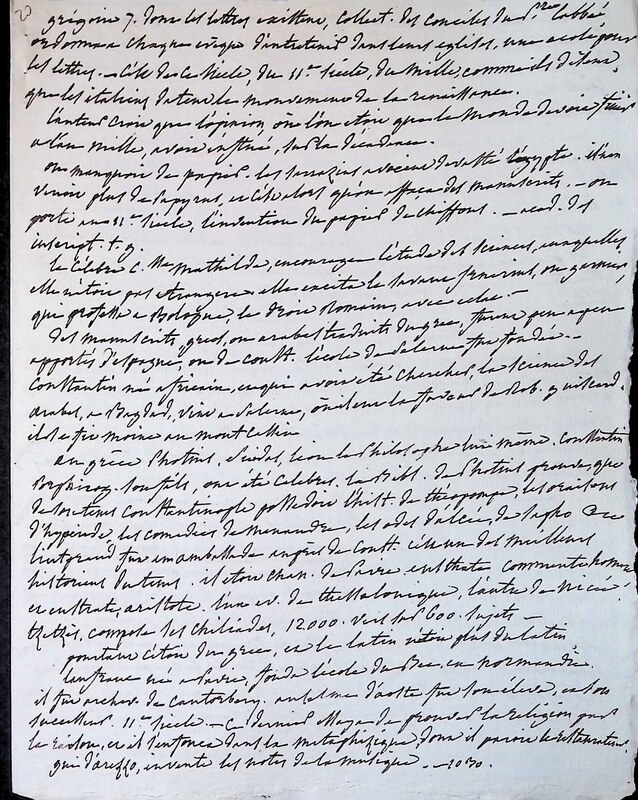 20
grégoire 7. dont les lettres existent, collect. des conciles du p. labbé,
ordonna a chaque evêque d'entretenir dans leurs eglises, une ecole pour
les lettres. – c'est de ce siècle, du 11e siècle, du mille, comme ils disent,
que les italiens datent le mouvement de la renaissance.
l'auteur croit que l'opinion, où l'on etoit que le monde devoit finir
a l'an mille, avoit influé, sur la décadence.
on manquoit de papier. les sarrazins avoient dévasté l'égypte. il n'en
venoit plus de papyrus, et c'est alors qu'on effaça des manuscrits. – on
porte au 11e siècle, l'invention du papier de chiffons. – acad. des
inscript. t. 9.
la célèbre c. Mathilde, encouragea l'étude des sciences, auxquelles
elle n'etoit pas etrangere. elle excita le savant
qui professa a Bologne, le droit Romain, avec eclat. –
des manuscrits, grecs, ou arabes traduits du grec, furent peu a peu
apportés d'espagne, ou de constt. l'école de Salerne fut fondée. –
Constantin né africain, et qui avoit été chercher, la science des
arabes, a Bagdad, vint a Salerne, où il eut la faveur de Rob. guiscard.
il se fit moine au mont Cassin
au grèce Photius. léon le Philosophe lui même. Constantin
son fils, ont été celebres. la Bibl. de Photius prouve, que
de son tems Constantinople possédoit l'hist. de théopompe, les oraisons
d'hypéride, les comédies de menandre, les odes d'alcée, de sapho &c
fut en ambassade auprès de constt. c'est un des meilleurs
historiens du tems. il etoit chan. de Pavie eusthate commente homere
et eustrate, aristote. l'un ev. de thessalonique, l'autre de nicée.
tzetzès, compose les chiliades, 12000. vers sur 600. sujets –
pourtant c'etoit du grec, et le latin n'etoit plus du latin
lanfranc né a Pavie, fonda l'école du Bec, en normandie.
il fut archev. de Cantorbery. anselme d'aoste fut son élève, et son
successeur. 11e siècle. – Ce dernier essaya de prouver la religion par
la raison, et il s'enfonce dans la metaphysique, dont il paroit le restaurateur.
gui d'arezzo, invente les notes de la musique. – 1030.